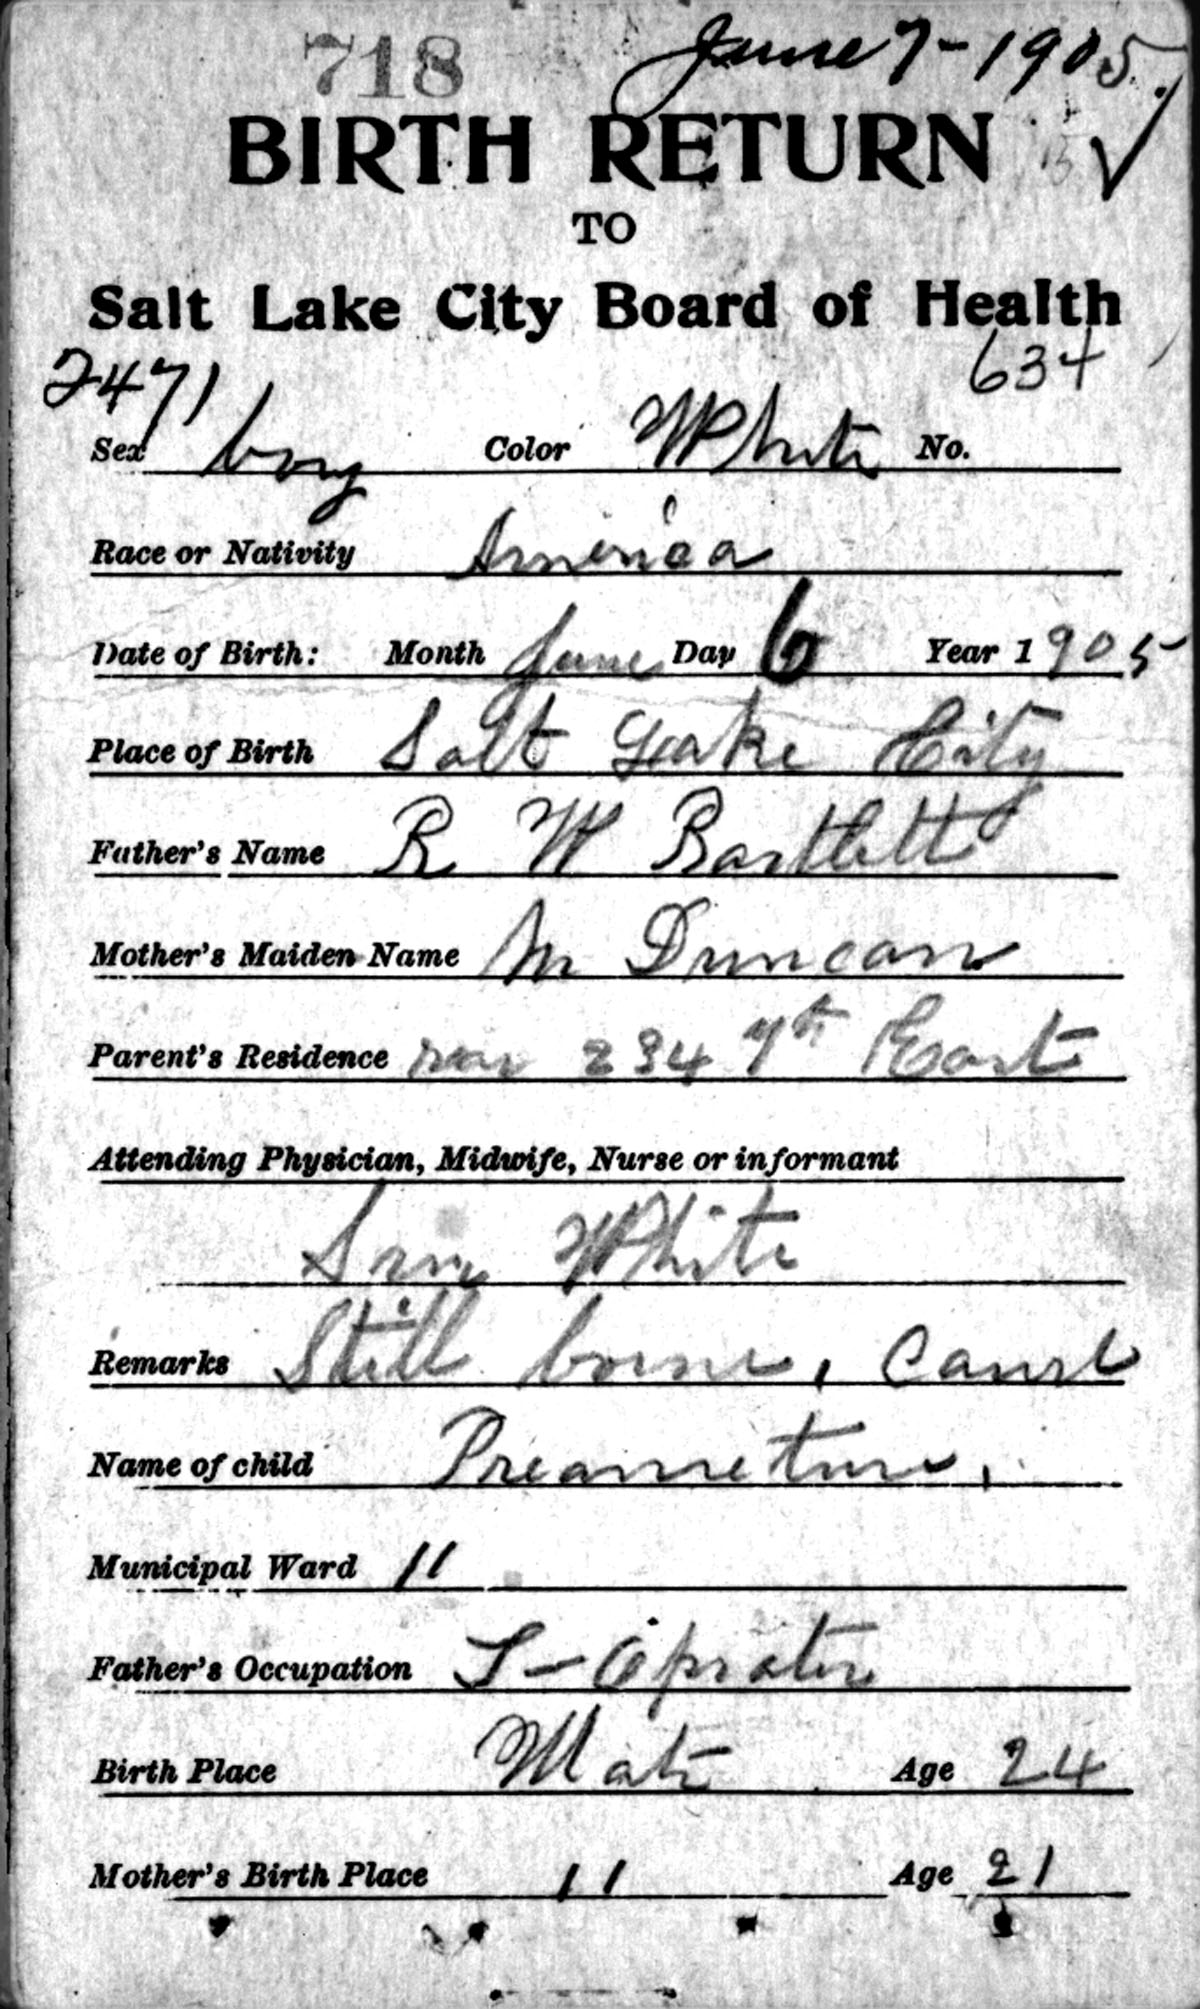 718 June 7-1905.
BIRTH RETURN
TO
Salt Lake City Board of Health
2471 634
Sex boy Color White No.
Race or Nativity America
Date of Birth: Month June Day 6 Year 1905
Place of Birth Salt Lake City
Father's Name R W Bartlett
Mother's Maiden Name M Duncan
Parent's Residence rear 234 7th East
Attending Physician, Midwife, Nurse or informant
White
Remarks Still borne, Cause
Name of child Preameture,
Municipal Ward 11
Father's Occupation
Birth Place Age 24
Mother's Birth Place 11 Age 21